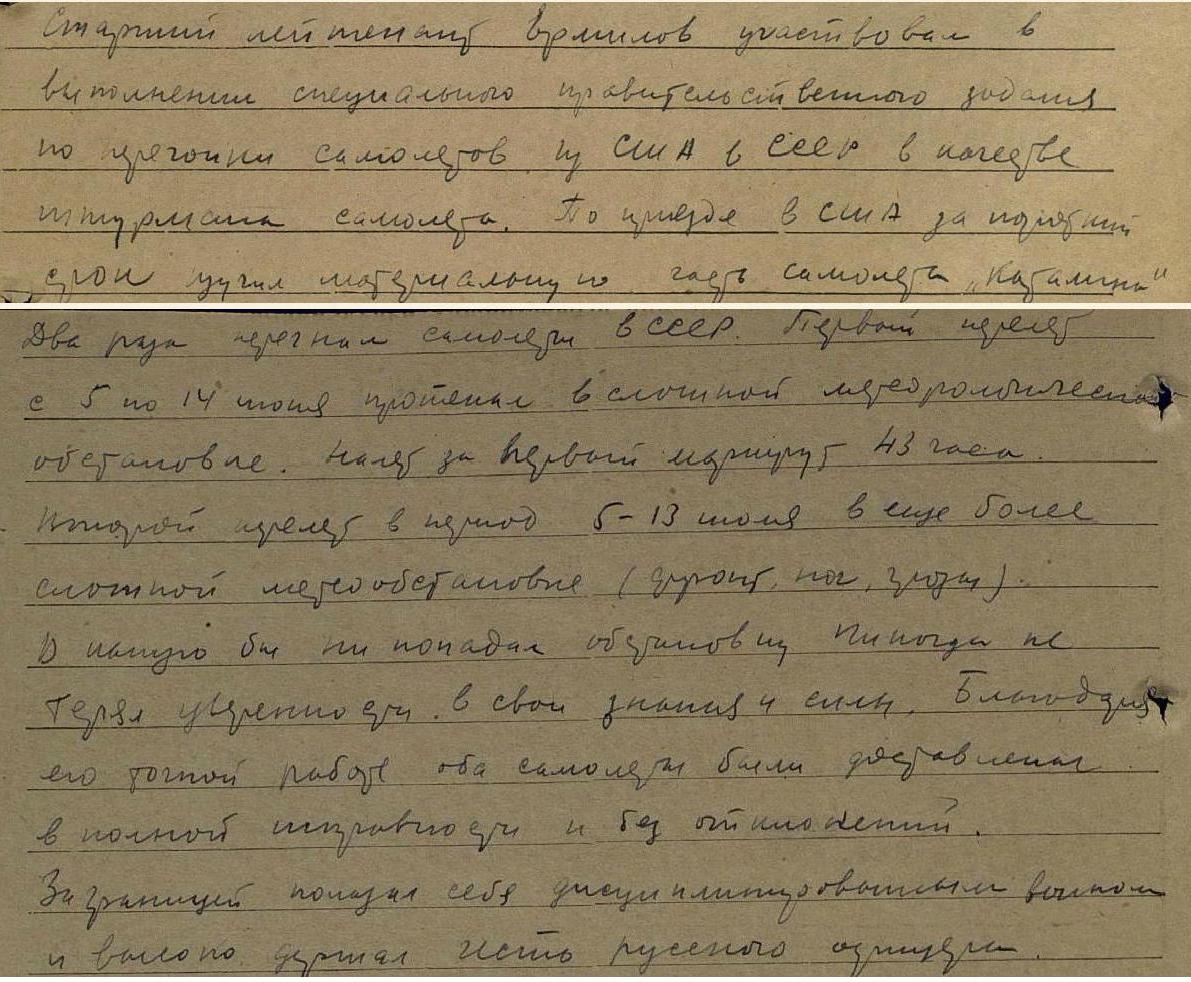 Старший лейтенант Ермилов участвовал в
выполнении специального правительственного задания
по перегонки самолетов из США в СССР в качестве
штурмана самолета. По приезде в США за короткий
срок изучил материальную часть самолета „Каталина"
Два раза перегнал самолеты в СССР. Первый перелет
с 5 по 14 июня протекал в сложной метеорологической
обстановке. Налет за первый маршрут 43 часа.
Второй перелет в период 5-13 июля в еще более
сложной метеообстановке (фронт, ног, грозы).
В какую бы ни попадал обстановку никогда не
терял уверенности в свои знания и силы. Благодаря
его точной работе оба самолеты были доставлены
в полной исправности и без отклонений.
Заграницей показал себя дисциплинированным воином
и высоко держал честь русского офицера.